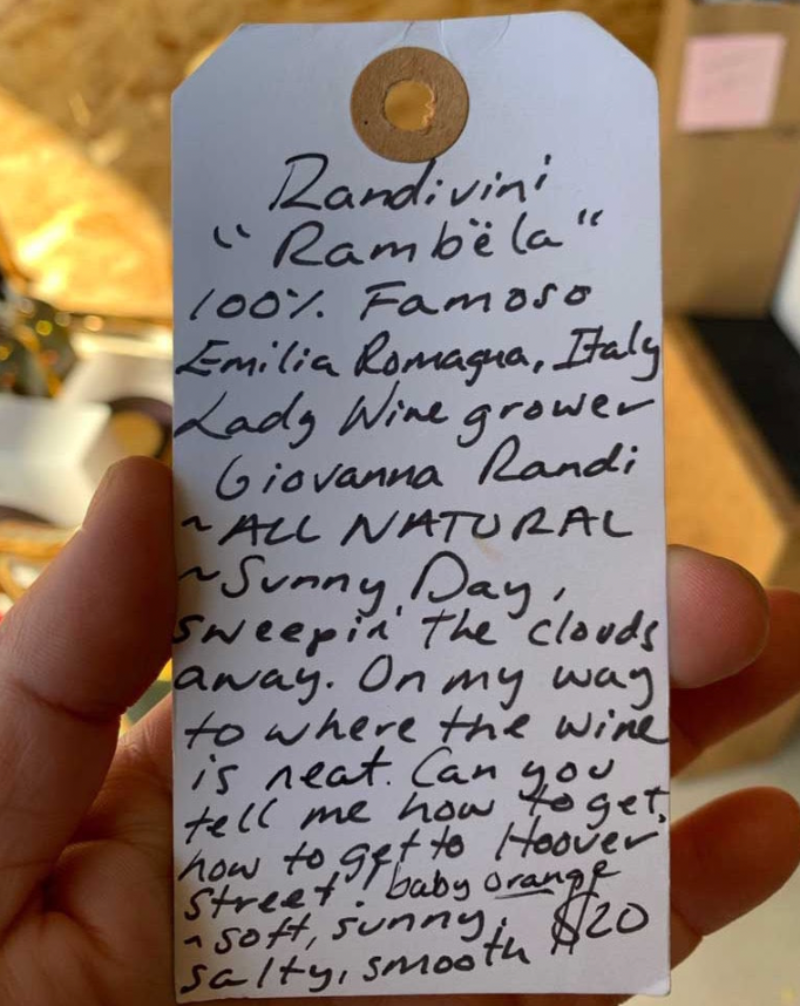 Randivini
"Rambëla"
100% Famoso
Emilia Romagna, Italy
Lady Wine grower
Giovanna Randi
~ALL NATURAL
~Sunny Day,
sweepin' the clouds
away. On my way
to where the wine
is neat. Can you
tell me how to get,
how to get to Hoover
Street! baby orange
~soft, sunny, $20
salty, smooth